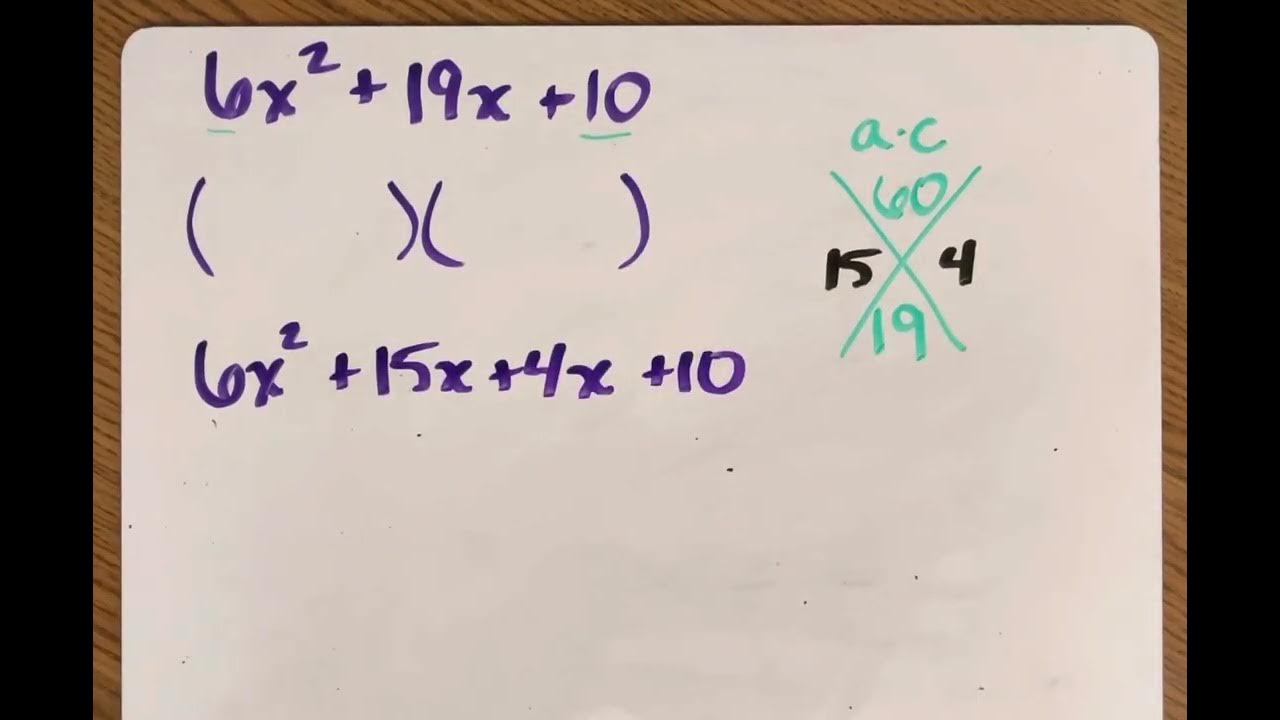 6x² + 19x + 10
(          )(          )
6x² + 15x + 4x + 10
a·c
60
15 4
19